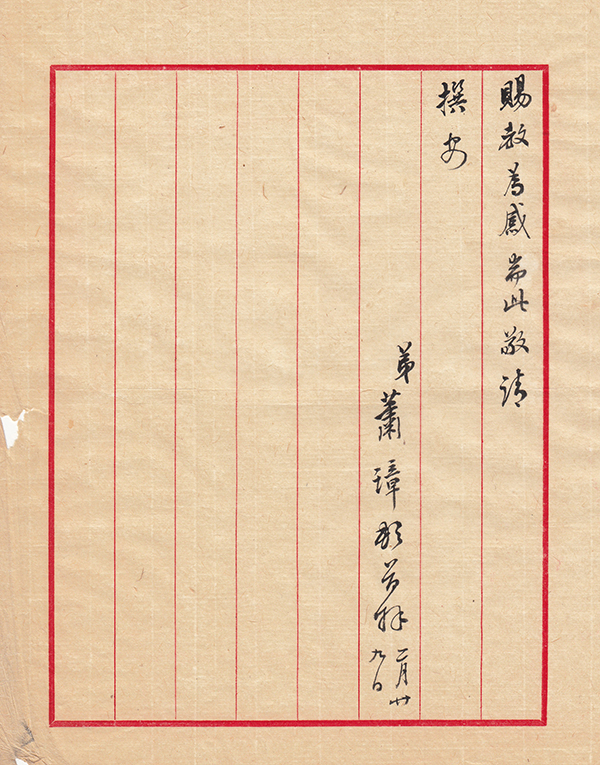 賜教為感耑此敬請
撰安
弟蕭璋頓首拜
二月廿
九日